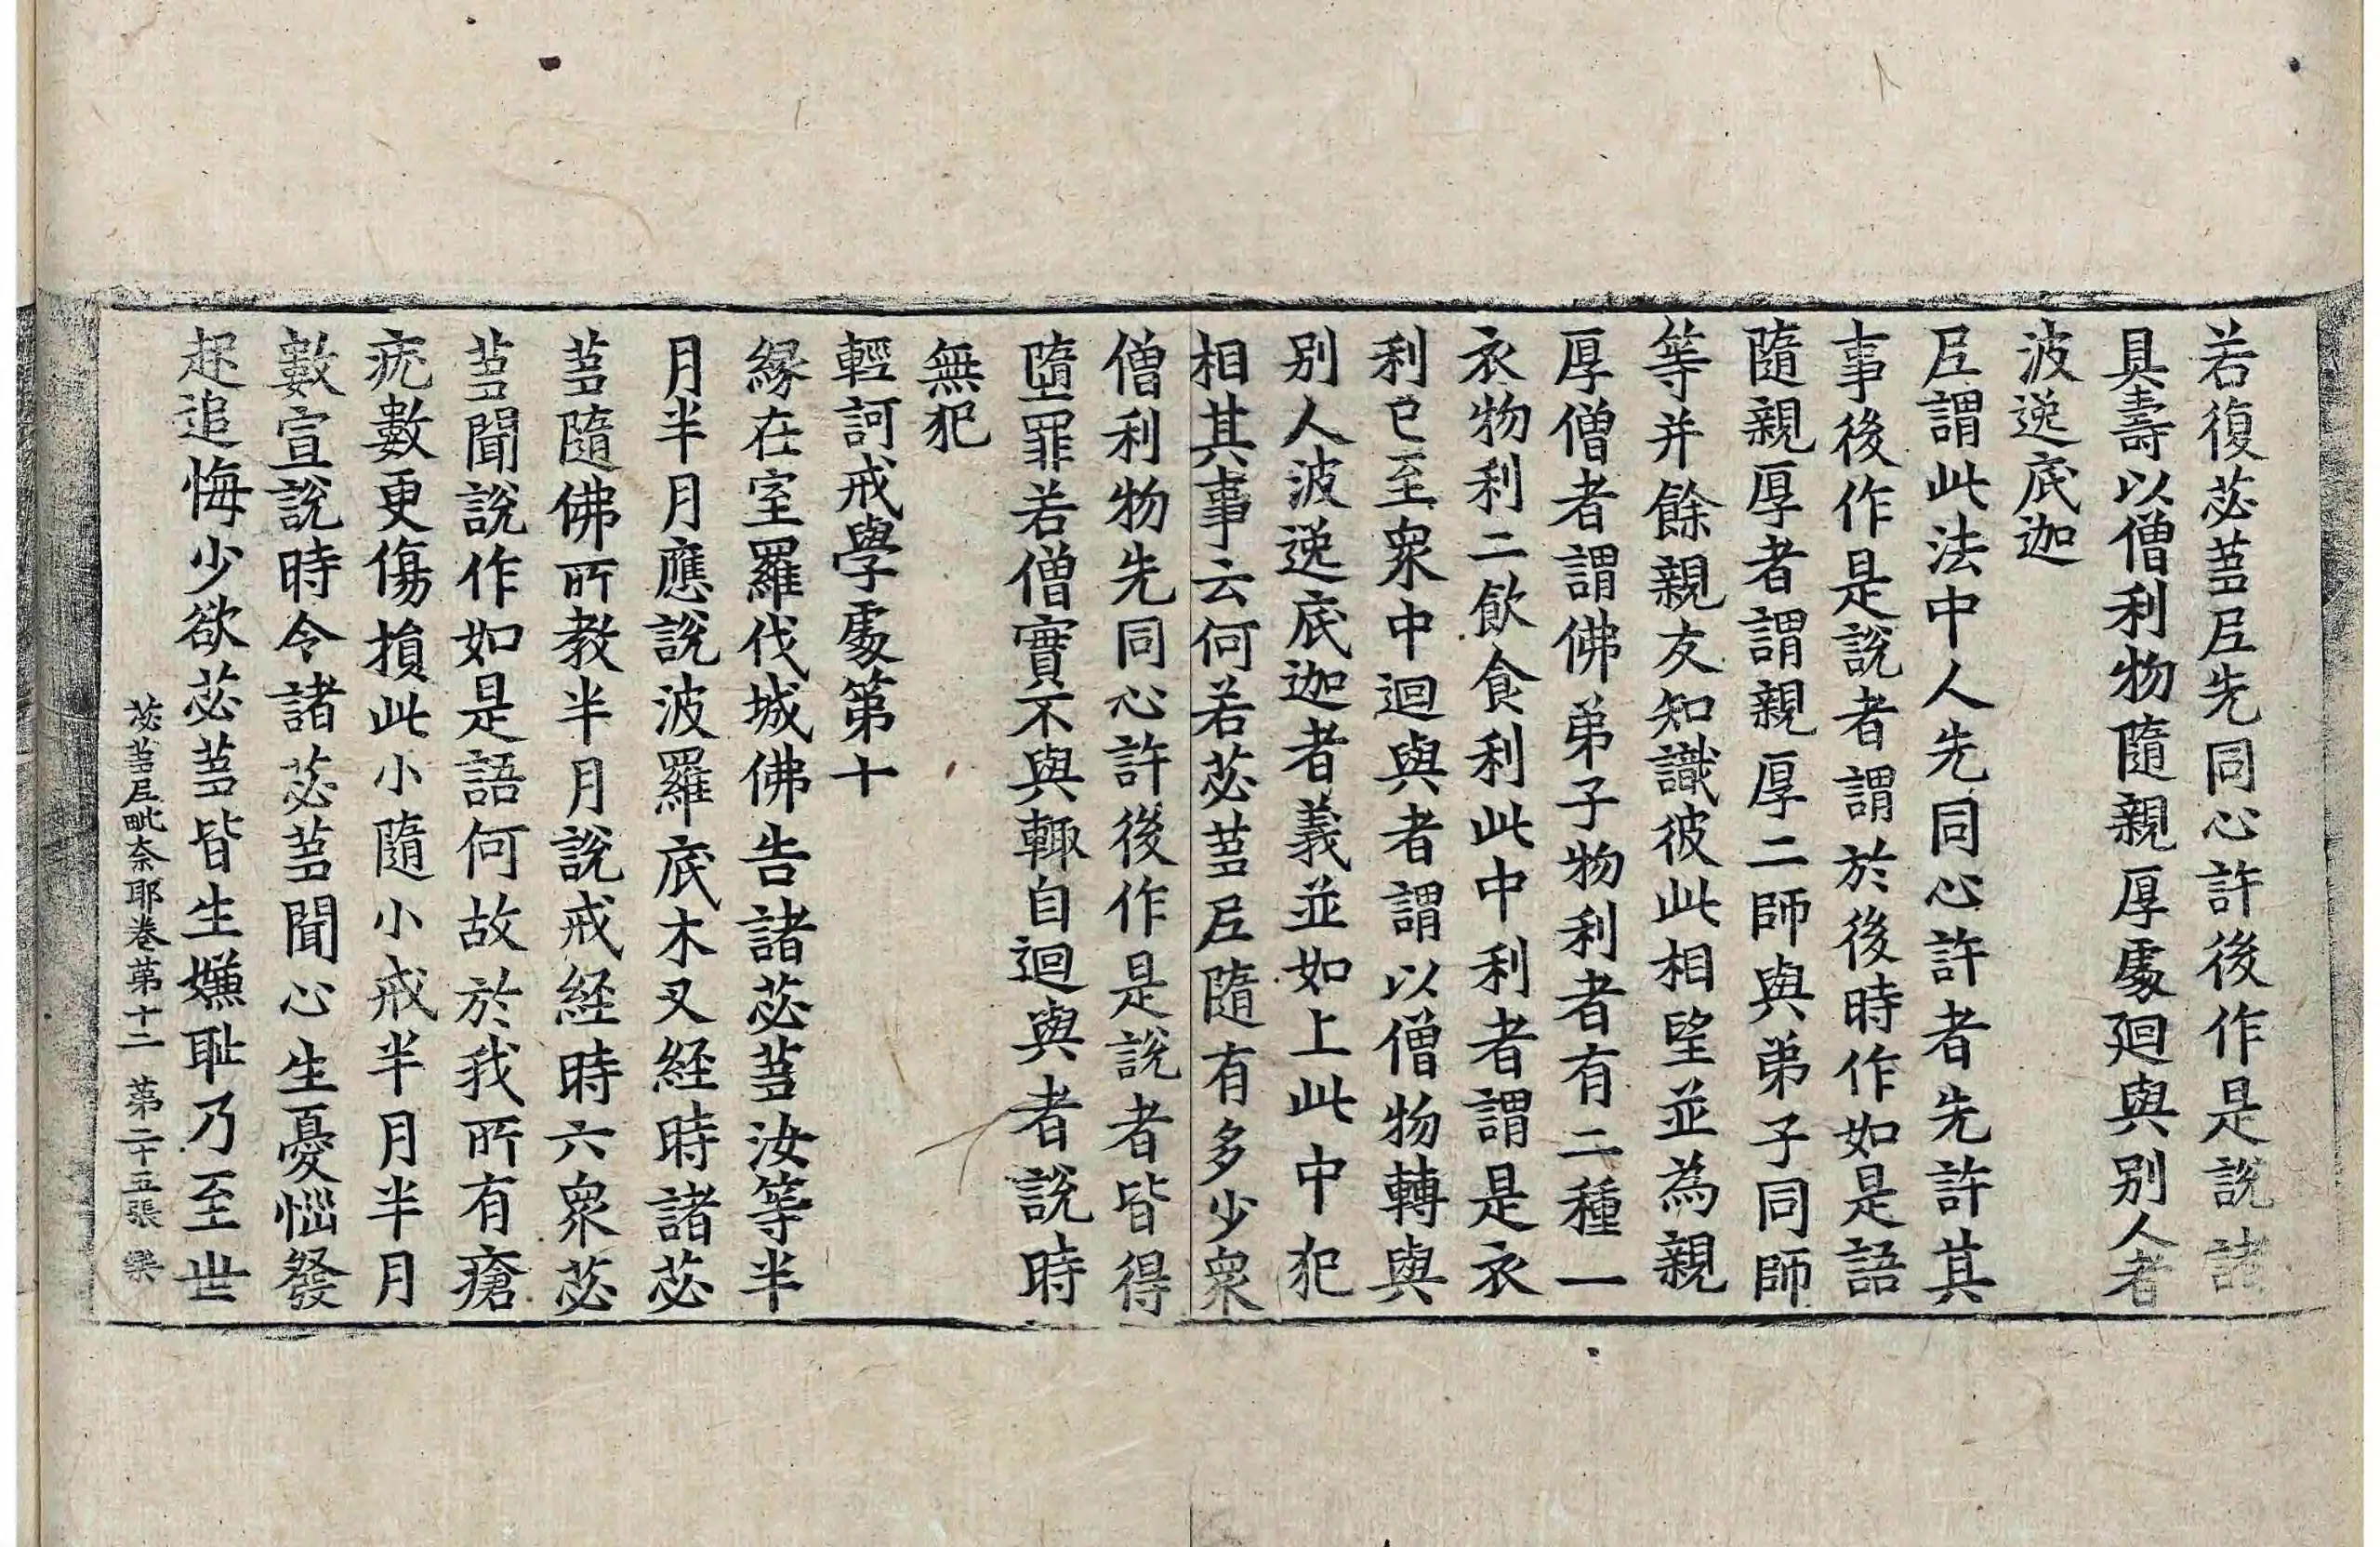 若復苾蒭尼先同心許後作是說諸
具壽以僧利物隨親厚處迴與别人者
波逸底迦
尼謂此法中人先同心許者先許其
事後作是說者謂於後時作如是語
隨親厚者謂親厚二師與弟子同師
等并餘親友知識彼此相望並為親
厚僧者謂佛弟子物利者有二種一
衣物利二飲食利此中利者謂是衣
利已至衆中迴與者謂以僧物轉與
别人波逸底迦者義並如上此中犯
相其事云何若苾蒭尼隨有多少衆
僧利物先同心許後作是說者皆得
墮罪若僧實不與輙自迴與者說時
無犯
輕訶戒學處第十
緣在室羅伐城佛告諸苾蒭汝等半
月半月應說波羅底木叉経時諸苾
蒭隨佛所教半月說戒経時六衆苾
蒭聞說作如是語何故於我所有瘡
疣數更傷損此小隨小戒半月半月
數宣說時令諸苾蒭聞心生憂惱發
起追悔少欲苾蒭皆生嫌耻乃至世
苾蒭尼毗奈耶卷第十二 第二十五張 樂